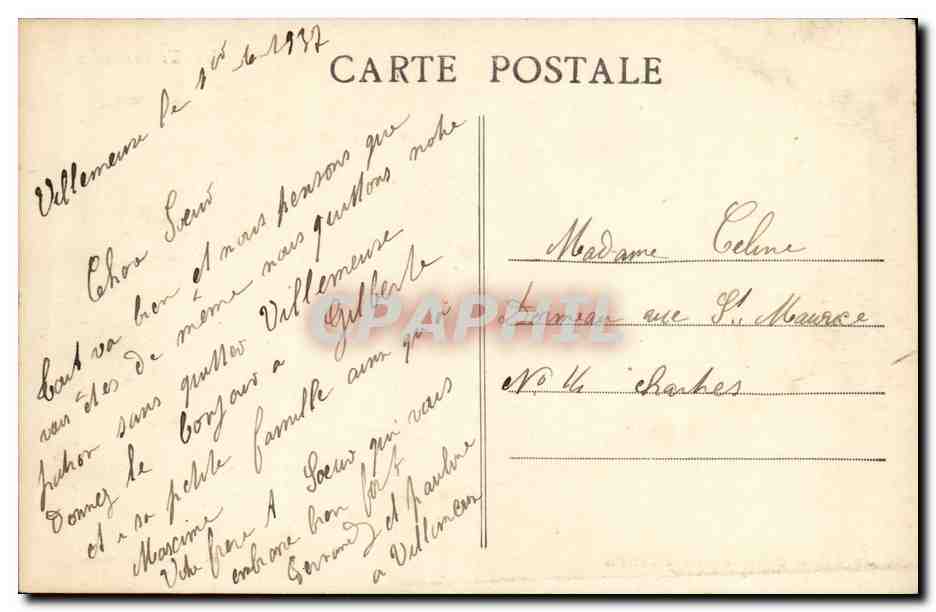 CARTE POSTALE
Villemeuse le 1er 6 1937
Chere Soeur
tout va bien et nous pensons que
vous êtes de même nous quittons notre
patron sans quitter Villemeuse
Donnez le bonjour a Gilberte
et a sa petite famille ainsi qu'a
Maxime
Votre frere & Soeur qui vous
embrasse bien fort
et pauline
a Villemeux
Madame Celine
rue St. Maurice
No chartres
CPAPHIL